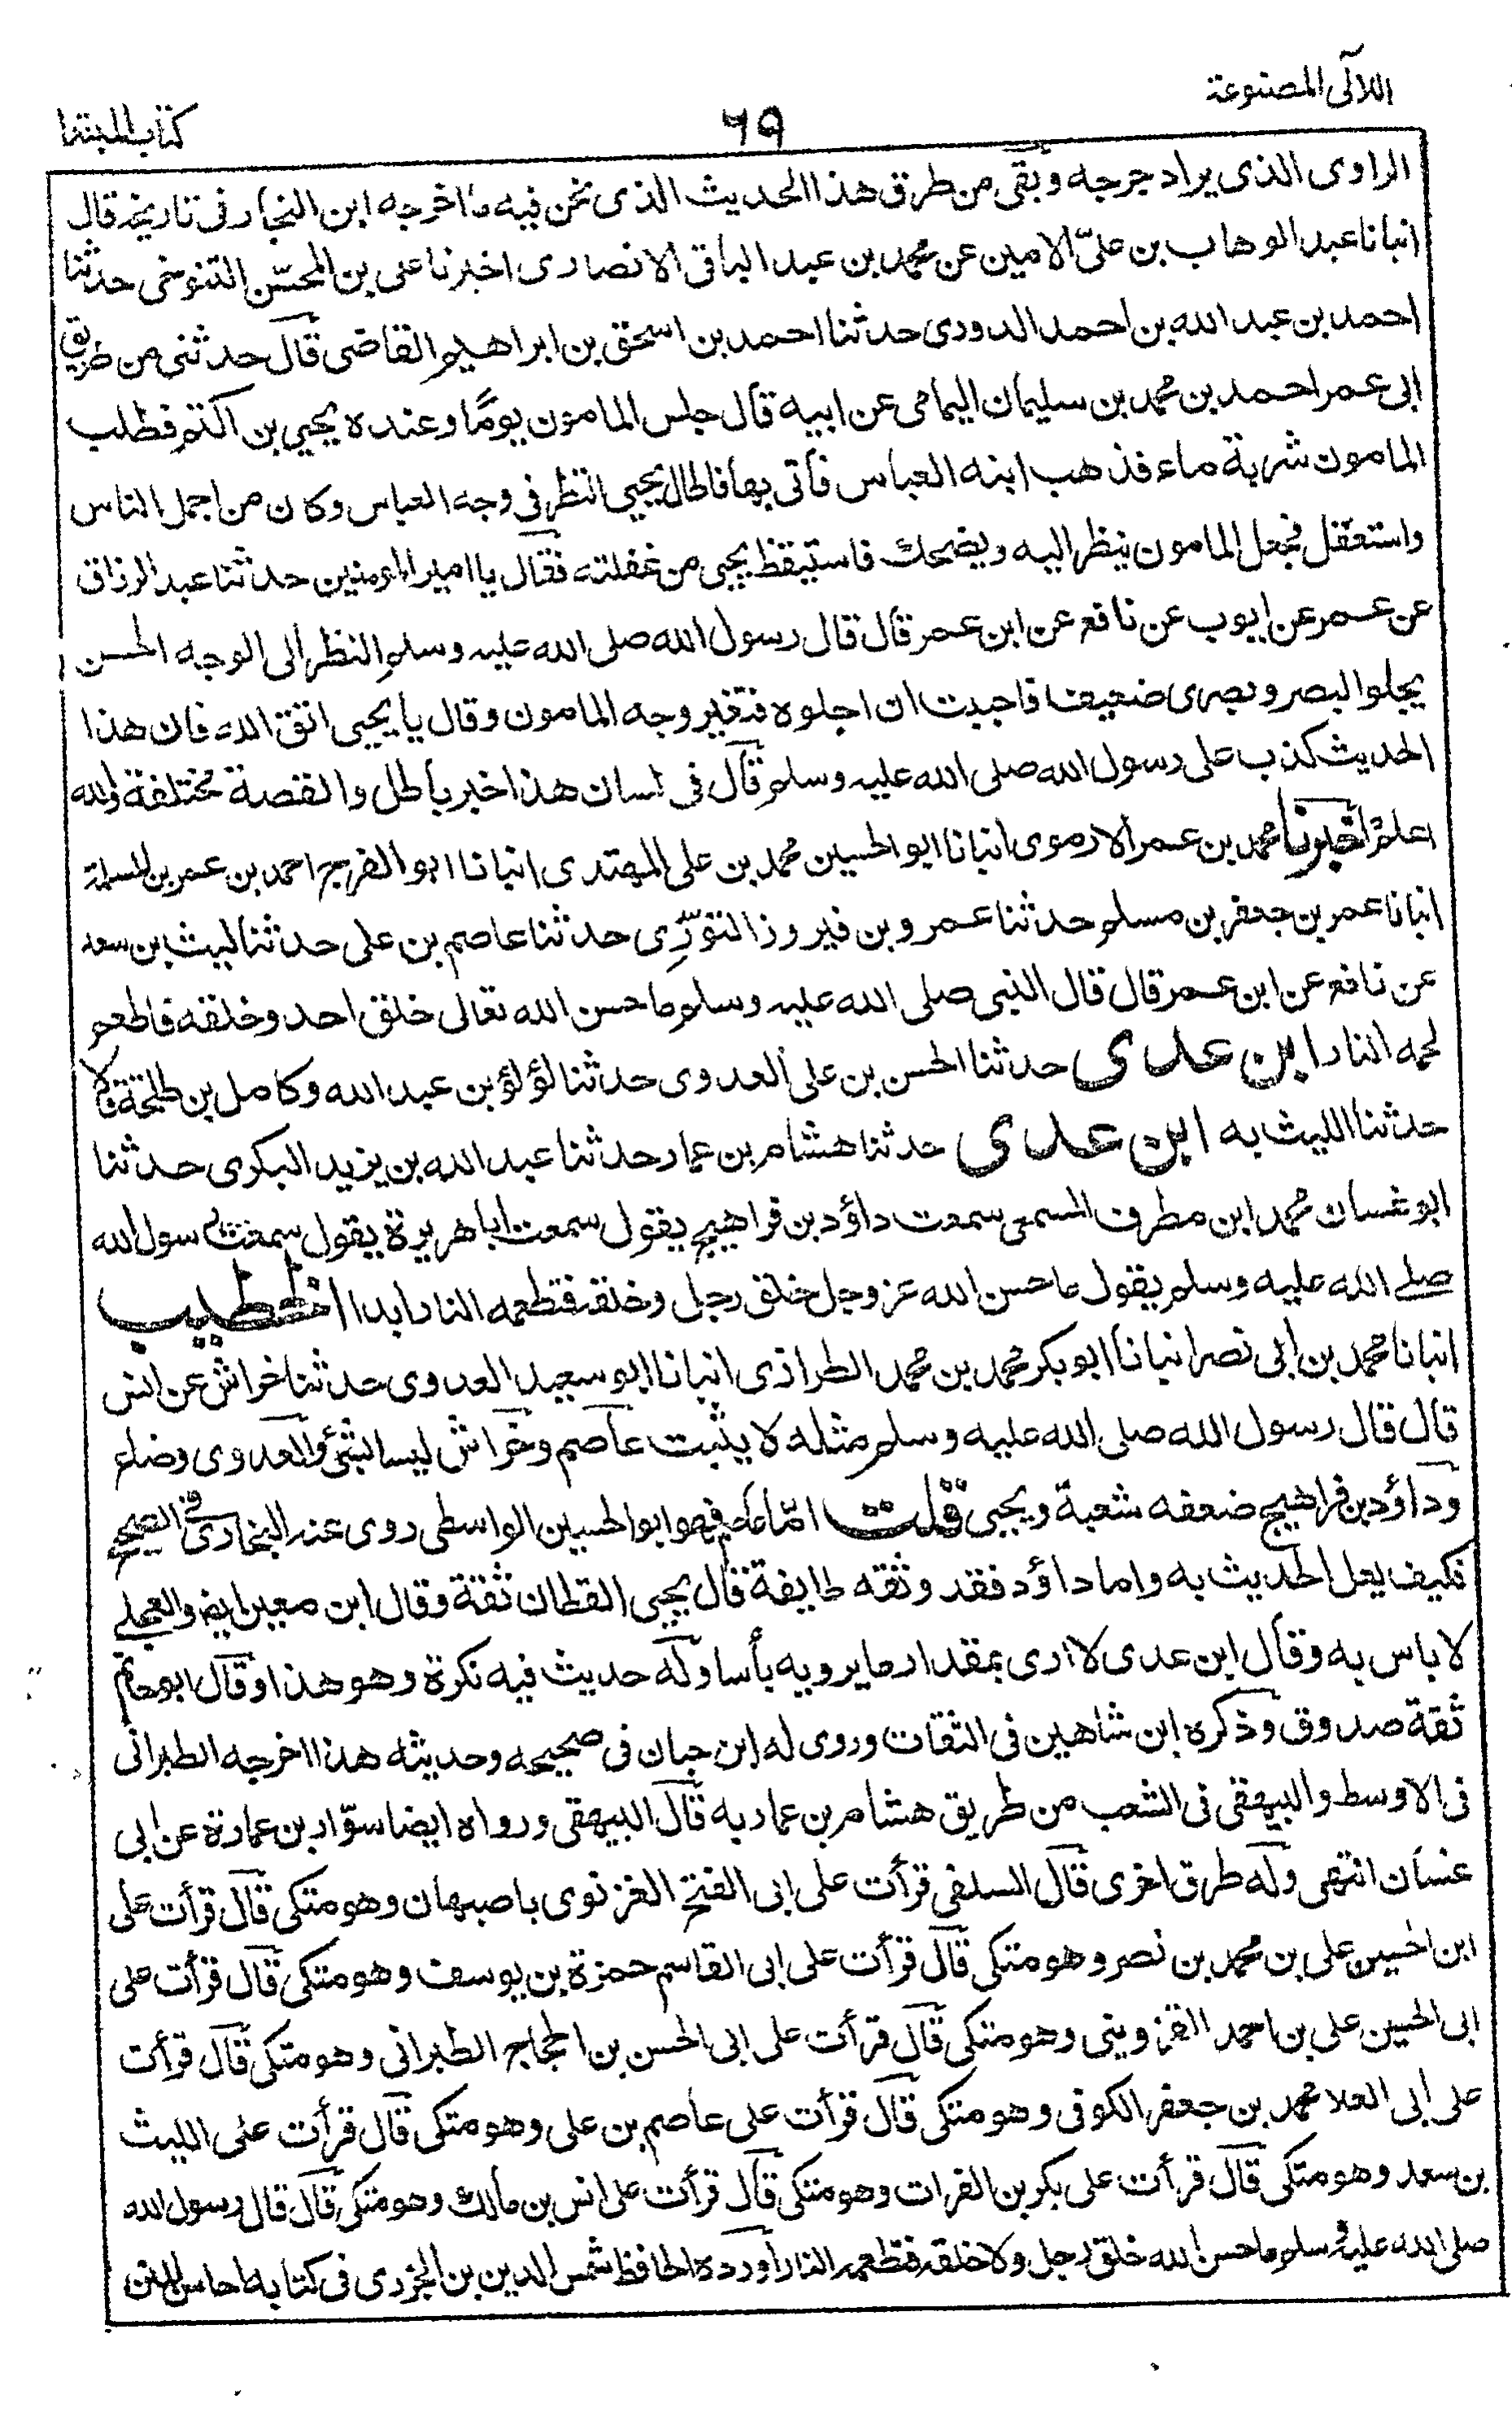 اللآلى المصنوعة
٦٩
كتاب المبتدا
الراوى الذى يراد جرجه وبقى من طرق هذا الحديث الذى نحن فيه ما اخرجه ابن النجار فى تاريخه قال
انبانا عبد الوهاب بن علىّ الامين عن محمد بن عبد الباقى الانصارى اخبرنا على بن المحسّن التنوخى حدثنا
احمد بن عبد الله بن احمد الدورى حدثنا احمد بن اسحق بن ابراهيم القاضى قال حدثنى من طريق
ابى عمر احمد بن محمد بن سليمان اليمامى عن ابيه قال جلس المامون يومًا وعنده يحيى بن اكثم فطلب
المامون شربة ماء فذهب ابنه العباس فأتى بها فاطال يحيى النظر فى وجه العباس وكان من اجمل الناس
واستعقل فجعل المامون ينظر اليه ويضحك فاستيقظ يحيى من غفلته فقال يا امير المومنين حدثنا عبد الرزاق
عن عمر عن ايوب عن نافع عن ابن عمر قال قال رسول الله صلى الله عليه وسلم النظر الى الوجه الحسن
يجلو البصر وبصرى ضعيف فاحببت ان اجلوه فتغير وجه المامون وقال يا يحيى اتق الله فان هذا
الحديث كذب على رسول الله صلى الله عليه وسلم قال فى لسان هذا خبر باطل والقصة مختلفة والله
اعلم اخبرنا محمد بن عمر الارموى انبانا ابو الحسين محمد بن على المهتدى انبانا ابو الفرج احمد بن عمر بن المسلمة
انبانا عمر بن جعفر بن مسلم حدثنا عمرو بن فيروز التوّزى حدثنا عاصم بن على حدثنا ليث بن سعد
عن نافع عن ابن عمر قال قال النبى صلى الله عليه وسلم ما حسن الله تعالى خلق احد وخلقه فاطعم
لحمه النار ابن عدى حدثنا الحسن بن على العدوى حدثنا لؤلؤ بن عبد الله وكامل بن طلحة قالا
حدثنا الليث به ابن عدى حدثنا هشام بن عمار حدثنا عبد الله بن يزيد البكرى حدثنا
ابو غسان محمد ابن مطرف المسمعى سمعت داؤد بن فراهيج يقول سمعت ابا هريرة يقول سمعت رسول الله
صلے الله عليه وسلم يقول ما حسن الله عز وجل خلق رجل وخلقه فتطعمه النار ابدا الخطيب
انبانا محمد بن ابى نصر انبانا ابو بكر محمد بن محمد الطرازى انبانا ابو سعيد العدوى حدثنا خراش عن انس
قال قال رسول الله صلى الله عليه وسلم مثله لا يثبت عاصم وخراش ليسا بشئ والعدوى وضاع
وداؤد بن فراهيج ضعفه شعبة ويحيى قلت امّا عاصم فهو ابو الحسين الواسطى روى عنه البخارى فى الصحيح
فكيف يعل الحديث به واما داؤد فقد وثقه طايفة قال يحيى القطان ثقة وقال ابن معين ايضا والعجلے
لا باس به وقال ابن عدى لا ارى بمقدار ما يرويه بأسا وله حديث فيه نكرة وهو هذا وقال ابو حاتم
ثقة صدوق وذكره ابن شاهين فى الثقات وروى له ابن حبان فى صحيحه وحديثه هذا اخرجه الطبرانى
فى الاوسط والبيهقى فى الشعب من طريق هشام بن عمار به قال البيهقى ورواه ايضا سوّار بن عمارة عن ابى
غسان انتهى وله طرق اخرى قال السلفى قرأت على ابى الفتح الغزنوى باصبهان وهو متكى قال قرأت على
ابن الحسين على بن محمد بن نصر وهو متكى قال قرأت على ابى القاسم حمزة بن يوسف وهو متكى قال قرأت على
ابى الحسين على بن احمد القزوينى وهو متكى قال قرأت على ابى الحسن بن الحجاج الطبرانى وهو متكى قال قرأت
على ابى العلا محمد بن جعفر الكوفى وهو متكى قال قرأت على عاصم بن على وهو متكى قال قرأت على الليث
بن سعد وهو متكى قال قرأت على بكر بن الفرات وهو متكى قال قرأت على انس بن مالك وهو متكى قال قال رسول الله
صلى الله عليه وسلم ما حسن الله خلق رجل ولا خلقه فتطعمه النار أورده الحافظ شمس الدين بن الجزرى فى كتابه احاسن المنن